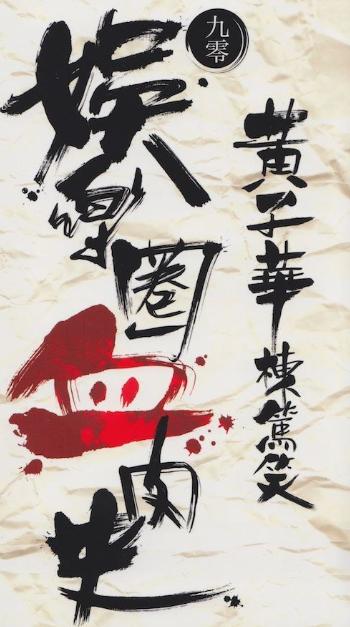 九零
黃子華棟篤笑
娛樂圈血肉史